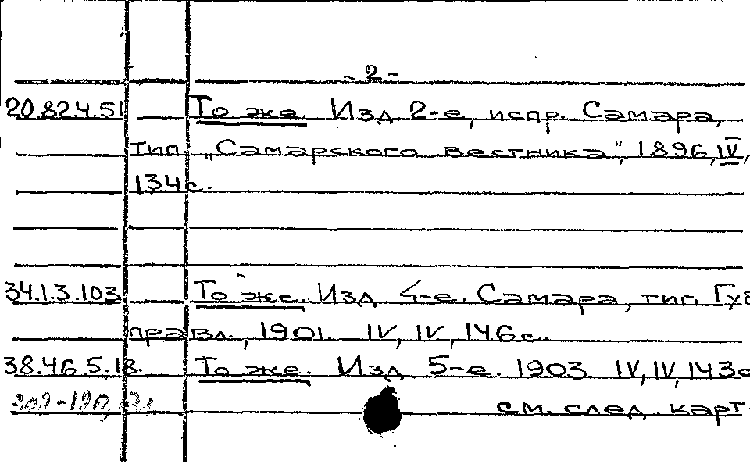 - 2 -
20.82.4.51 То же. Изд 2-е, испр. Самара,
тип. „Самарского вестника", 1896, IV,
134 с.
34.13.103 То же. Изд 4-е. Самара, тип Губ
правл., 1901. IV, IV, 146 с.
38.46.5.18. То же. Изд 5-е. 1903 IV, IV, 143 с
см. след. карт